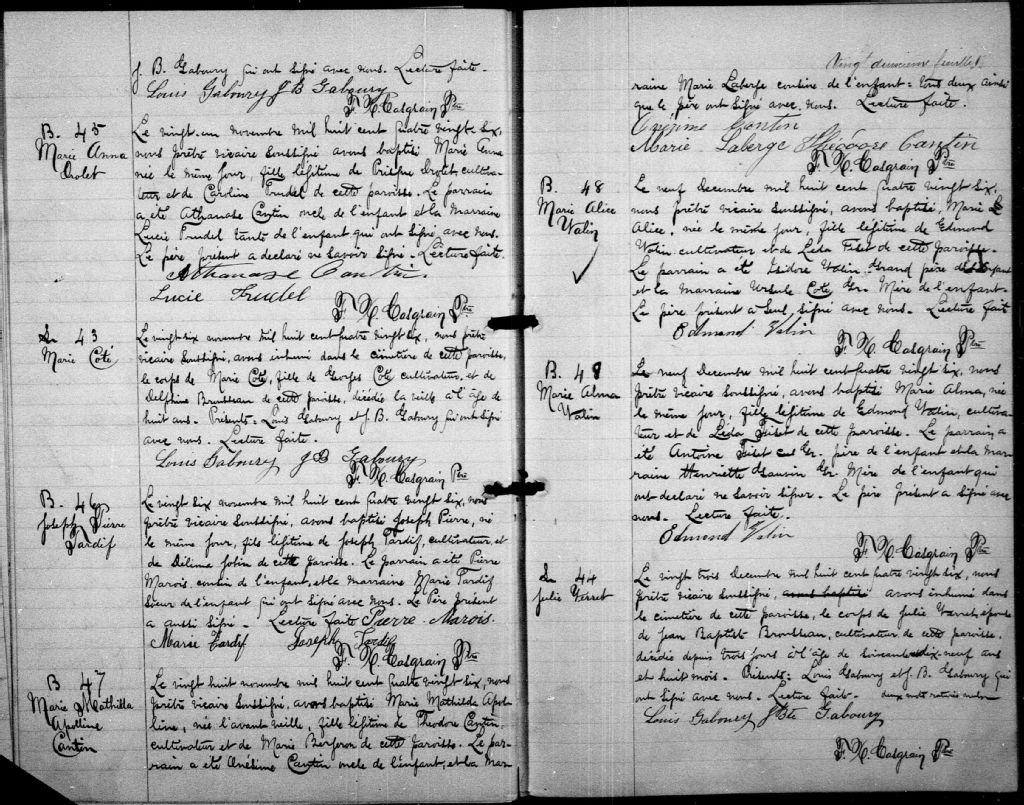 J. B. Gaboury qui ont signé avec nous. Lecture faite.
Louis Gaboury J B Gaboury
F. X. Casgrain Ptre
B. 45
Marie Anna
Drolet
Le vingt-un novembre mil huit cent quatre vingt-six,
nous prêtre vicaire soussigné avons baptisé Marie Anna
née le même jour, fille légitime de Drolet, cultiva-
teur et de Caroline Trudel de cette paroisse. Le parrain
a été Athanase Cantin oncle de l'enfant et la marraine
Lucie Trudel tante de l'enfant qui ont signé avec nous.
Le père présent a déclaré ne savoir signé. Lecture faite.
Athanase Cantin
Lucie Trudel
F. X. Casgrain Ptre
S 43
Marie Coté
Le vingt-six novembre mil huit cent quatre vingt six, nous prêtre
vicaire soussigné, avons inhumé dans le cimetière de cette paroisse,
le corps de Marie Coté, fille de Georges Coté cultivateur, et de
Delphine Brousseau de cette paroisse, décédée la veille à l'âge de
huit ans. Présents: Louis Gaboury et J. B. Gaboury qui ont signé
avec nous. Lecture faite.
Louis Gaboury J B Gaboury
F. X. Casgrain Ptre
B. 46
Joseph Pierre
Tardif
Le vingt six novembre mil huit cent quatre vingt six, nous
prêtre vicaire soussigné, avons baptisé Joseph Pierre, né
le même jour, fils légitime de Joseph Tardif, cultivateur, et
de Délima Jobin de cette paroisse. Le parrain a été Pierre
Marois, cousin de l'enfant, et la marraine Marie Tardif
soeur de l'enfant qui ont signé avec nous. Le Père présent
a aussi signé. Lecture faite Pierre Marois.
Marie Tardif Joseph Tardif
F. X. Casgrain Ptre
B 47
Marie Mathilda
Apolline
Cantin
Le vingt huit novembre mil huit cent quatre vingt six, nous
prêtre vicaire soussigné, avons baptisé Marie Mathilda Apol-
line, née l'avant veille, fille légitime de Théodore Cantin
cultivateur et de Marie Bergeron de cette paroisse. Le par-
rain a été Onésime Cantin oncle de l'enfant, et la mar-
Vingt deuxième feuillet
raine Marie Laberge cousine de l'enfant tous deux ainsi
que le père ont signé avec nous. Lecture faite.
Onésime Cantin
Marie Laberge Théodore Cantin
F. X. Casgrain Ptre
B. 48
Marie Alice
Valin
Le neuf Decembre mil huit cent quatre vingt six,
nous prêtre vicaire soussigné, avons baptisé, Marie
Alice, née le même jour, fille légitime de Edmond
Valin cultivateur et de Léda Fiset de cette paroisse.
Le parrain a été Isidore Valin Grand père de l'enfant
et la marraine Ursule Coté Gr. Mère de l'enfant.
Le père présent a seul signé avec nous. Lecture fait
Edmond Valin
F. X. Casgrain Ptre
B. 48
Marie Alma
Valin
Le neuf Decembre mil huit cent quatre vingt six, nous
prêtre vicaire soussigné, avons baptisé Marie Alma, née
le même jour, fille légitime de Edmond Valin, cultiva-
teur et de Léda Fiset de cette paroisse. Le parrain a
été Antoine Fiset Gr. père de l'enfant et la mar-
raine Henriette Gauvin Gr. Mère de l'enfant qui
ont declaré ne savoir signer. Le père présent a signé avec
nous. Lecture faite.
Edmond Valin
F. X. Casgrain Ptre
S 44
Julie Verret
Le vingt trois Decembre mil huit cent quatre vingt six, nous
prêtre vicaire soussigné, avons baptisé avons inhumé dans
le cimetière de cette paroisse, le corps de Julie Verret, épouse
de Jean Baptiste Brousseau, cultivateur de cette paroisse,
décédée depuis trois jours à l'âge de soixante dix-neuf ans
et huit mois. Présents: Louis Gaboury et J. B. Gaboury qui
ont signé avec nous. Lecture faite. deux mots rayés nuls
Louis Gaboury J Bte Gaboury
F. X. Casgrain Ptre